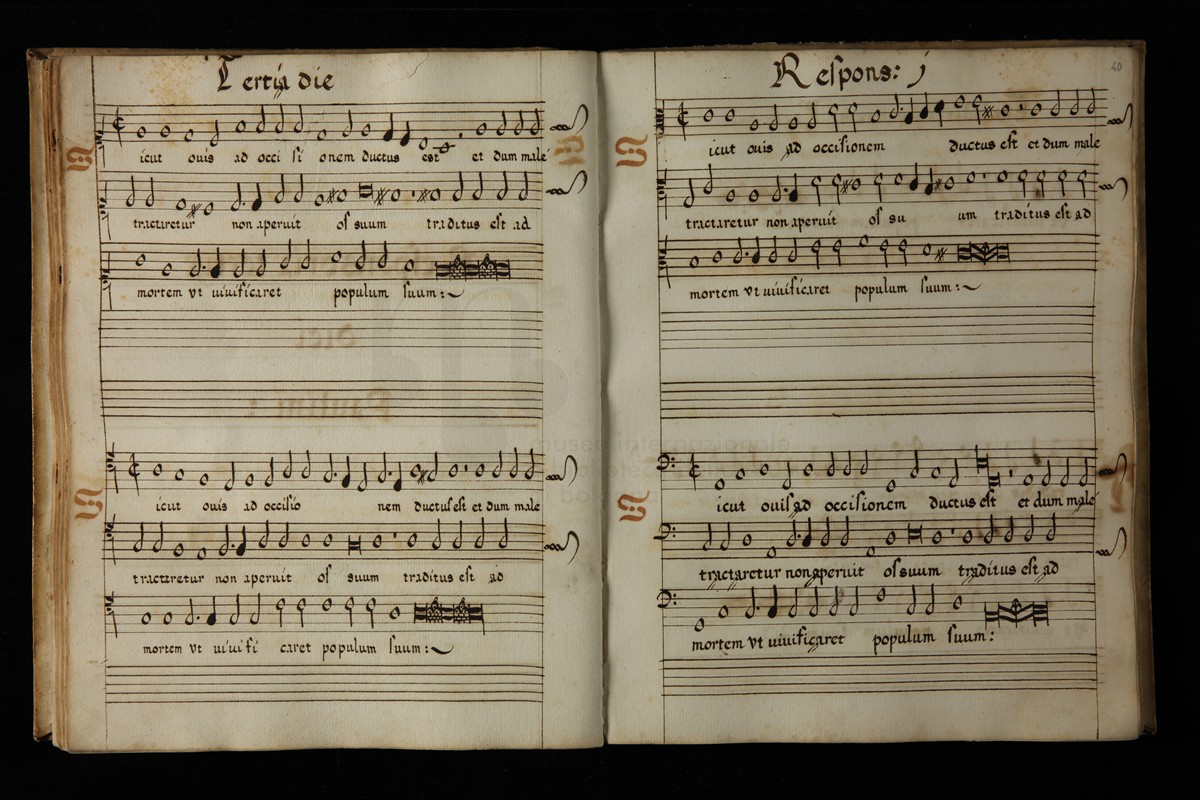 Tertia die
S icut ouis ad occi si onem ductus est et dum male
tractaretur non aperuit os suum traditus est ad
mortem vt uiuificaret populum suum:
S icut ouis ad occisio nem ductus est et dum male
tractaretur non aperuit os suum traditus est ad
mortem vt uiuifi caret populum suum:
Respons: j
40
S icut ouis ad occisionem ductus est et dum male
tractaretur non aperuit os su um traditus est ad
mortem vt uiuificaret populum suum:
S icut ouis ad occisionem ductus est et dum male
tractaretur non aperuit os suum traditus est ad
mortem vt uiuificaret populum suum:
museo internazionale